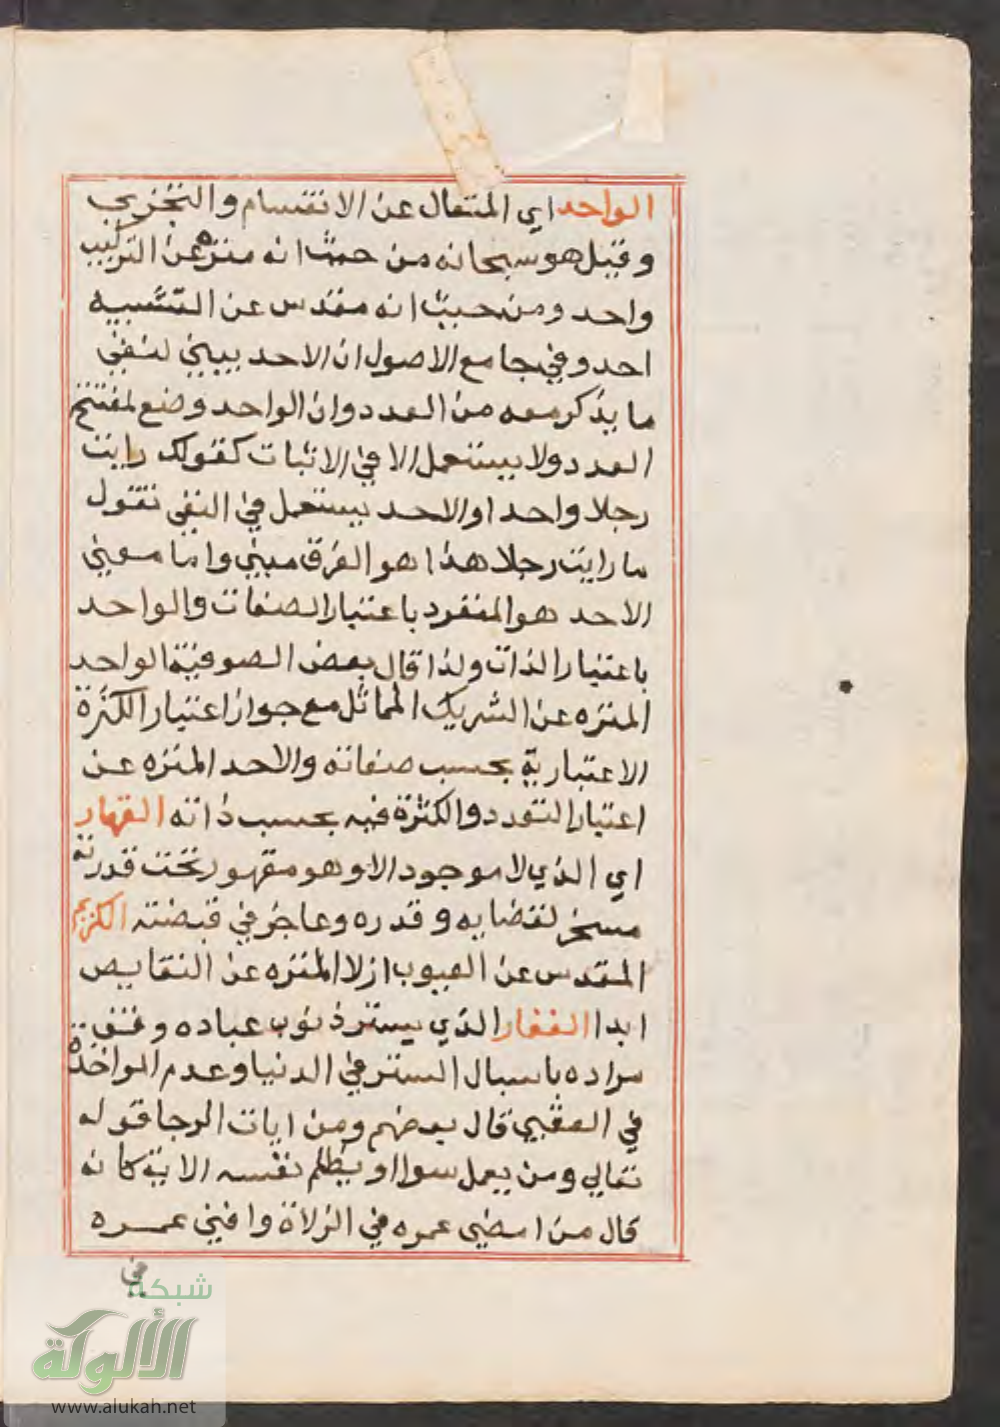 الواحد اي المتعال عن الانقسام والتجزي
وقيل هو سبحانه من حيث انه منزه عن التركيب
واحد ومن حيث انه مقدس عن التشبيه
احد وفي جامع الاصول ان الاحد يبني لنفي
ما يذكر معه من العدد وان الواحد وضع لمفتتح
العدد ولا يستعمل الا في الاثبات كقولك رايت
رجلا واحدا والاحد يستعمل في النفي تقول
ما رايت رجلا هذا هو الفرق مبني واما معني
الاحد هو المنفرد باعتبار الصفات والواحد
باعتبار الذات ولذا قال بعض الصوفية الواحد
المنزه عن الشريك المماثل مع جواز اعتبار الكثرة
الاعتبارية بحسب صفاته والاحد المنزه عن
اعتبار التعدد والكثرة فيه بحسب ذاته القهار
اي الذي لا موجود الا وهو مقهور تحت قدرته
مسخر لقضايه وقدره وعاجز في قبضته الكريم
المقدس عن العيوب ازلا المنزه عن النقايص
ابدا الغفار الذي يستر ذنوب عباده وفق
مراده باسبال الستر في الدنيا وعدم المواخذة
في العقبي قال بعضهم ومن ايات الرجا قوله
تعالي ومن يعمل سوا او يظلم نفسه الاية كانه
قال من امضي عمره في الزلاة وافني عمره
في
شبكة
الألوكة
www.alukah.net